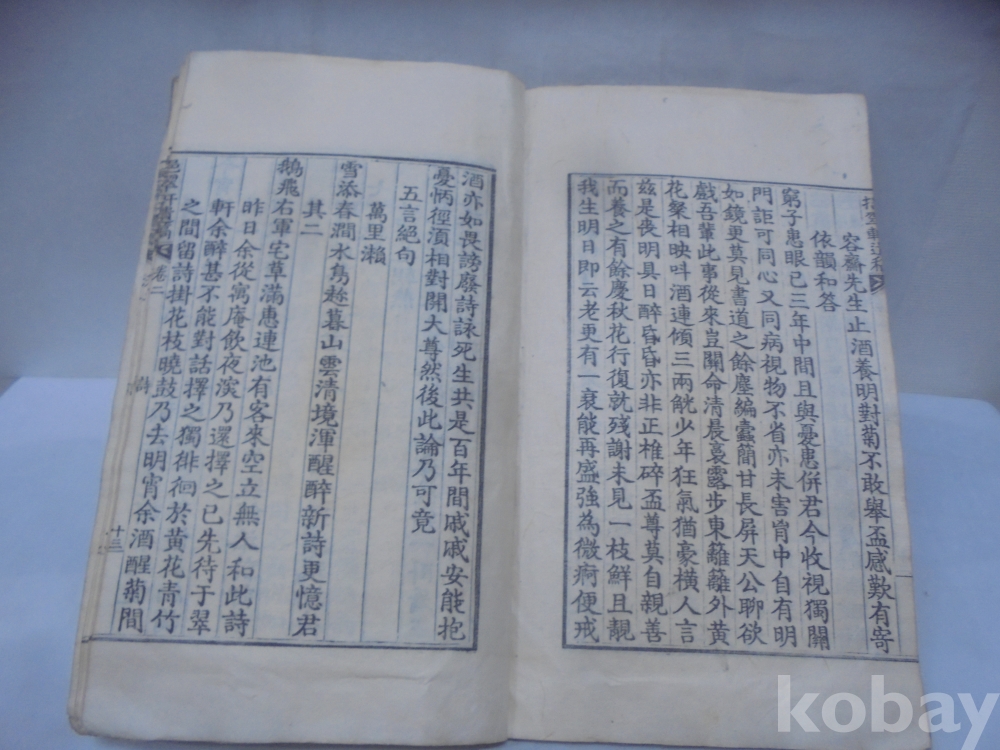 容齋先生止酒養明對菊不敢擧盃感歎有寄
依韻和答
窮子患眼已三年中間且與憂患併君今收視獨關
門詎可同心又同病視物不省亦未害胷中自有明
如鏡更莫見書道之餘塵編蠹簡甘長屏天公聊欲
戲吾輩此事從來豈關命淸晨裛露步東籬籬外黃
花粲相映呌酒連傾三兩觥少年狂氣猶豪橫人言
玆是喪明具日醉昏昏亦非正椎碎盃尊莫自親善
而養之有餘慶秋花行復就殘謝未見一枝鮮且靚
我生明日卽云老更有一衰能再盛強為微痾便戒
酒亦如畏謗廢詩詠死生共是百年間戚戚安能抱
憂怲徑湏相對開大尊然後此論乃可竟
五言絕句
萬里瀨
雪添春澗水鳥趂暮山雲清境渾醒醉新詩更憶君
其二
鵝飛右軍宅草滿惠連池有客來空立無人和此詩
昨日余從寓庵飮夜深乃還擇之已先待于翠
軒余醉甚不能對話擇之獨徘徊於黃花青竹
之間留詩掛花枝曉鼓乃去明宵余酒醒菊間
軒遺稿
卷二
十三
kobay